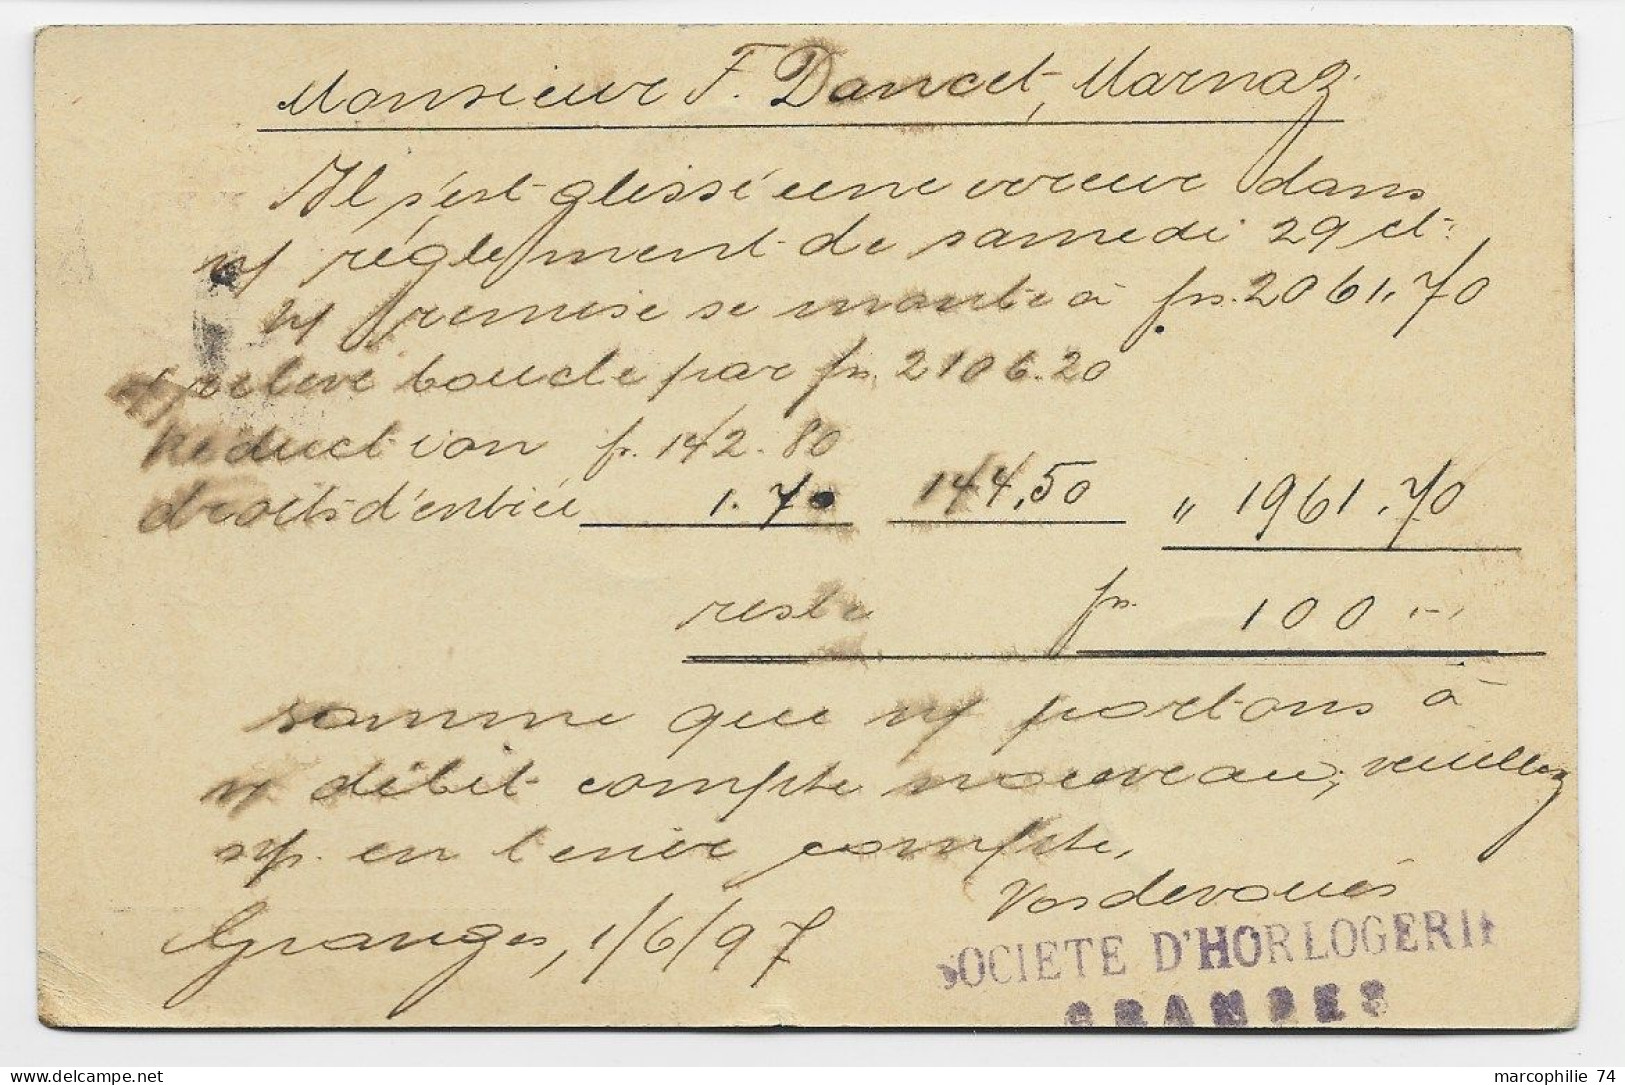 Monsieur F. Dancet, Marnaz.
Il s'est glissé une erreur dans
n/ réglement de samedi 29 ct.
n/ remise se monte à frs. 2061,70
v/ relevé boucle par frs. 2106.20
Réduction fr. 142.80
droits d'entrée 1.70 144,50 " 1961.70
reste frs. 100 --
somme que n/ portons à
v/ débit compte nouveau, veuillez
svp. en tenir compte,
Vos dévoués
Granges, 1/6/97
SOCIETE D'HORLOGERIE
GRANGES
marcophilie 74